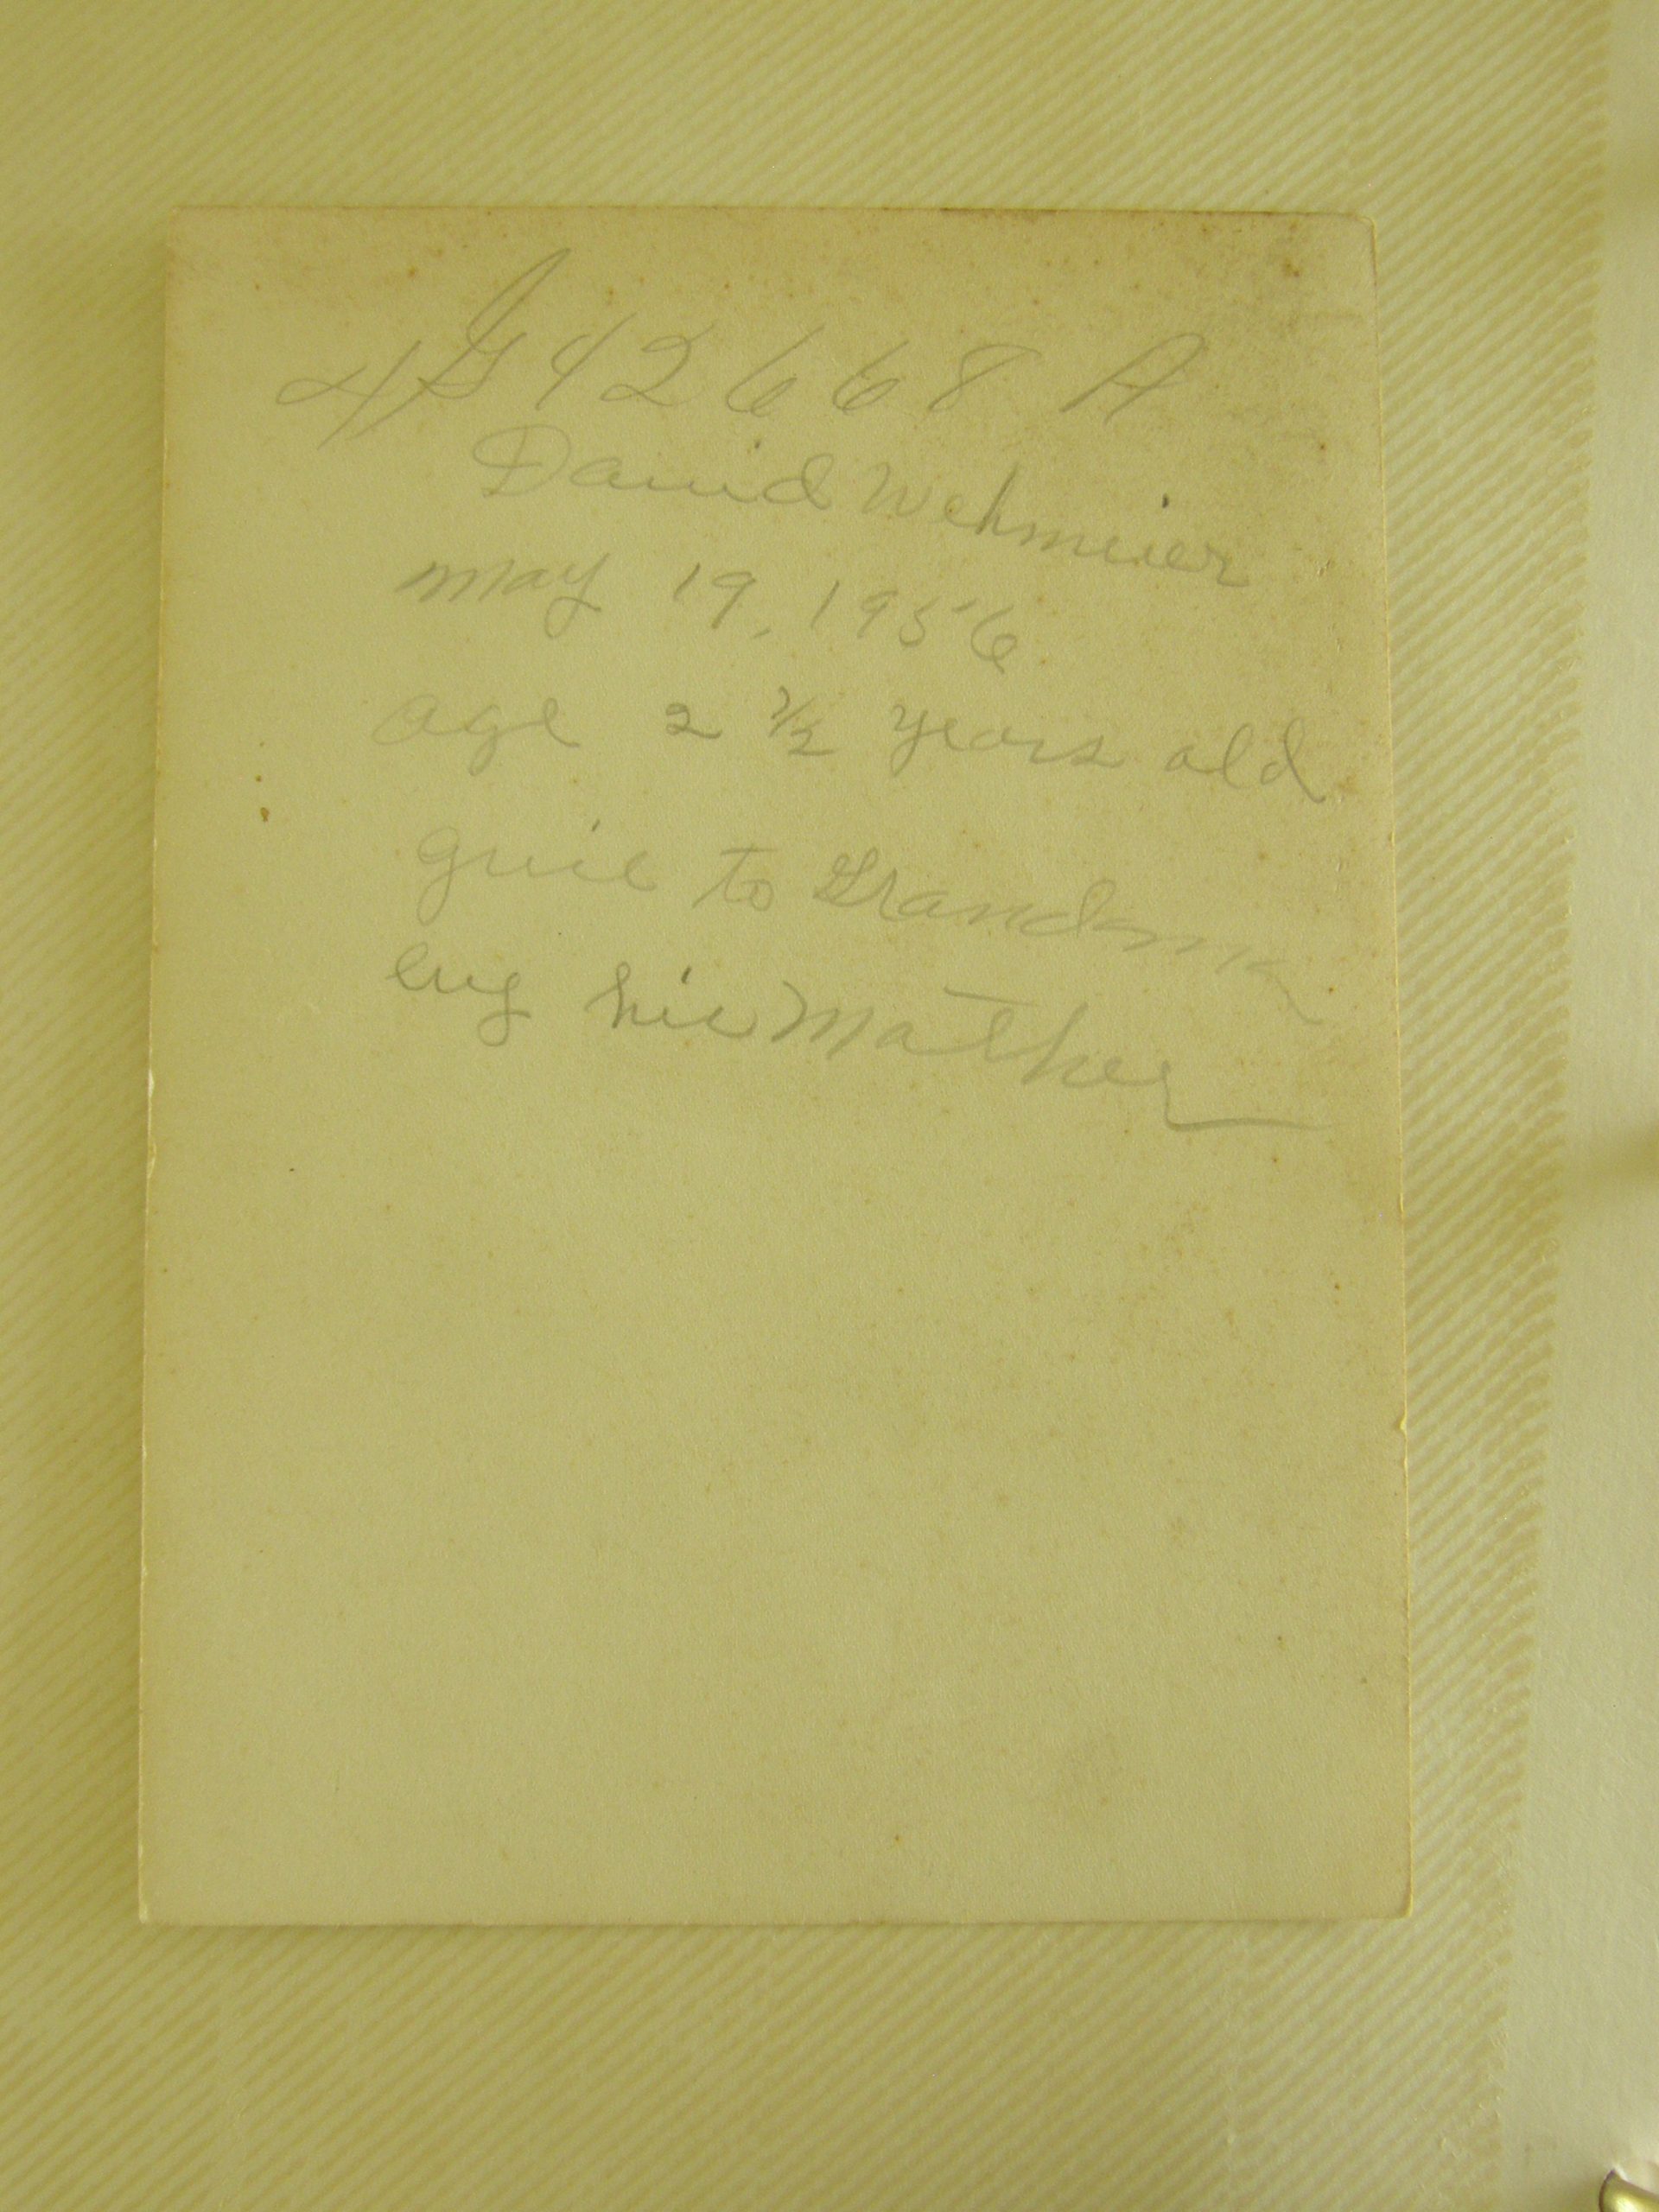 42668 A
David Wehmeier
may 19, 1956
age 2 ½ years old
give to Grandma
by his Mother